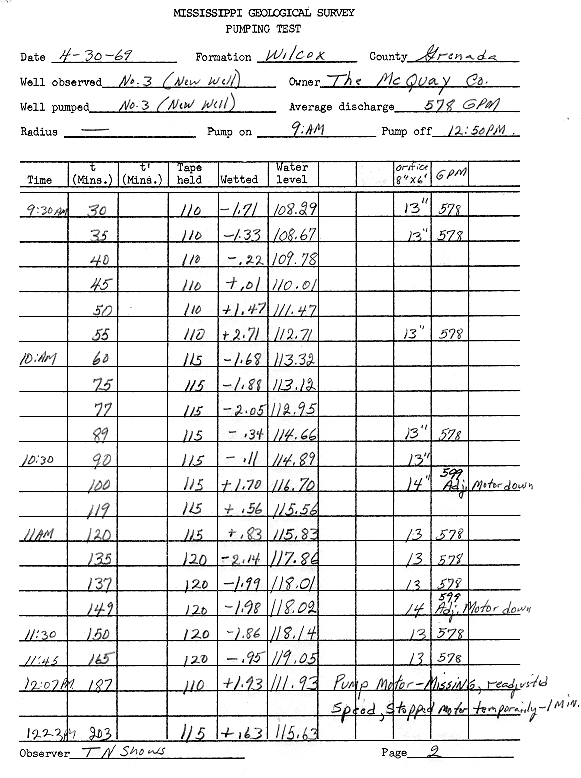 MISSISSIPPI GEOLOGICAL SURVEY
PUMPING TEST
Date 4-30-69 Formation Wilcox County Grenada
Well observed No. 3 (New Well) Owner The McQuay Co.
Well pumped No. 3 (New Well) Average discharge 578 GPM
Radius — Pump on 9:AM Pump off 12:50PM.
Time t (Mins.) t' (Mins.) Tape held Wetted Water level orifice 8"x6" GPM
9:30AM 30 110 -1.71 108.29 13" 578
35 110 -1.33 108.67 13" 578
40 110 -.22 109.78
45 110 +.01 110.01
50 110 +1.47 111.47
55 110 +2.71 112.71 13" 578
10:AM 60 115 -1.68 113.32
75 115 -1.88 113.12
77 115 -2.05 112.95
89 115 -.34 114.66 13" 578
10:30 90 115 -.11 114.89 13"
100 115 +1.70 116.70 14" 599 Adj. Motor down
119 115 +.56 115.56
11AM 120 115 +.83 115.83 13 578
135 120 -2.14 117.86 13 578
137 120 -1.99 118.01 13 578
149 120 -1.98 118.02 14 599 Adj. Motor down
11:30 150 120 -1.86 118.14 13 578
11:45 165 120 -.95 119.05 13 578
12:07PM 187 110 +1.93 111.93 Pump Motor-Missing, readjusted
Speed, Stopped Motor temporarily-1 Min.
1223P 203 115 +.63 115.63
Observer T N Shows Page 2